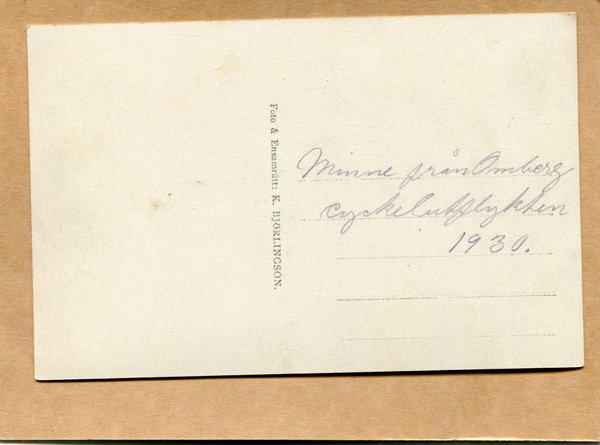 Foto & Ensamrätt: K. BJÖRLINGSON.
Minne från Omberg
cyckelutflykten
1930.